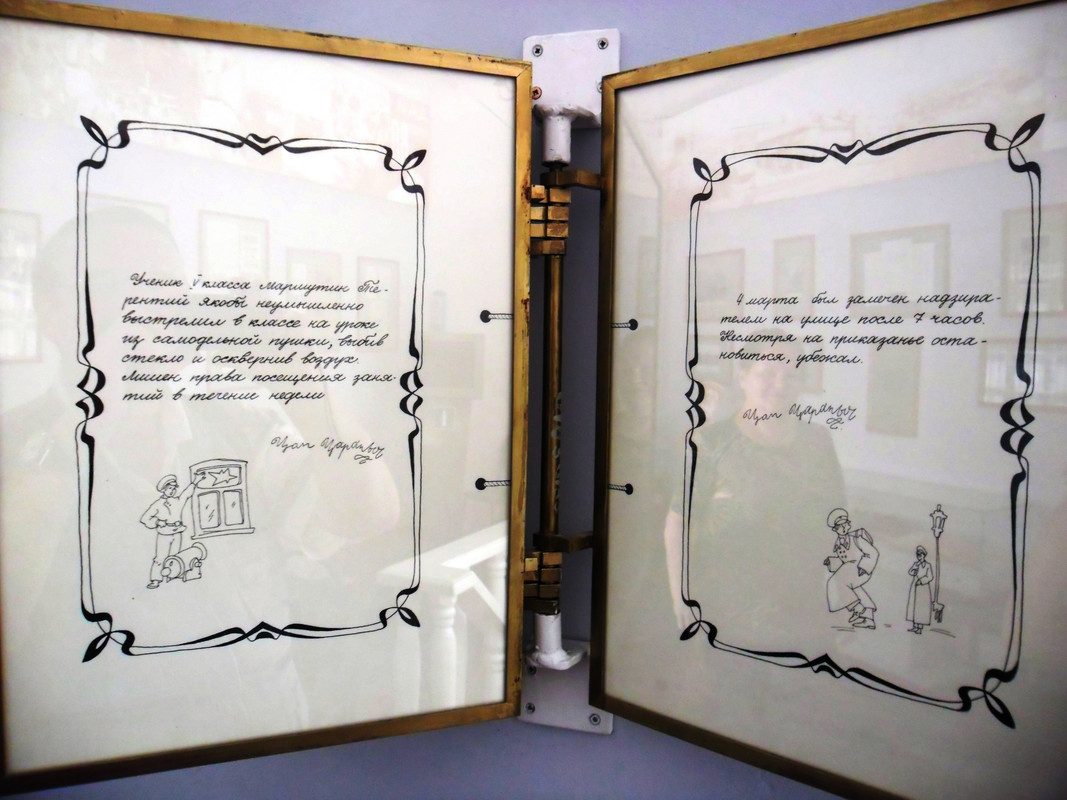 Ученик V класса Маршутин Те-
рентий якобы неумышленно
выстрелил в классе на уроке
из самодельной пушки, выбив
стекло и осквернив воздух.
Лишен права посещения заня-
тий в течение недели
Цап Царапыч
4 марта был замечен надзира-
телем на улице после 7 часов.
Несмотря на приказанье оста-
новиться, убежал.
Цап Царапыч